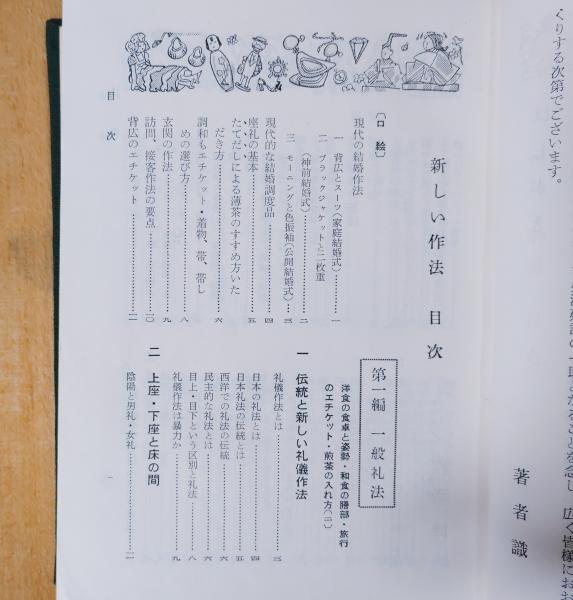 くりする次第でございます。
著者識
新しい作法 目次
〔口絵〕
現代の結婚作法
一 背広とスーツ(家庭結婚式)……一
二 ブラックジャケットと二枚重
(神前結婚式)……二
三 モーニングと色振袖(公開結婚式)……三
現代的な結婚調度品……四
座礼の基本……五
たてだしによる薄茶のすすめ方いた
だき方……六
調和もエチケット・着物、帯、帯し
めの選び方……八
玄関の作法……九
訪問、接客作法の要点……一〇
背広のエチケット……一一
第一編 一般礼法
洋食の食卓と姿勢・和食の膳部・旅行
のエチケット・煎茶の入れ方(二)
一 伝統と新しい礼儀作法
礼儀作法とは……三
日本の礼法とは……四
日本礼法の伝統とは……五
西洋での礼法の伝統……六
民主的な礼法とは……六
目上・目下という区別と礼法……八
礼儀作法は暴力か……九
二 上座・下座と床の間
陰陽と男礼・女礼……一一
目次
一